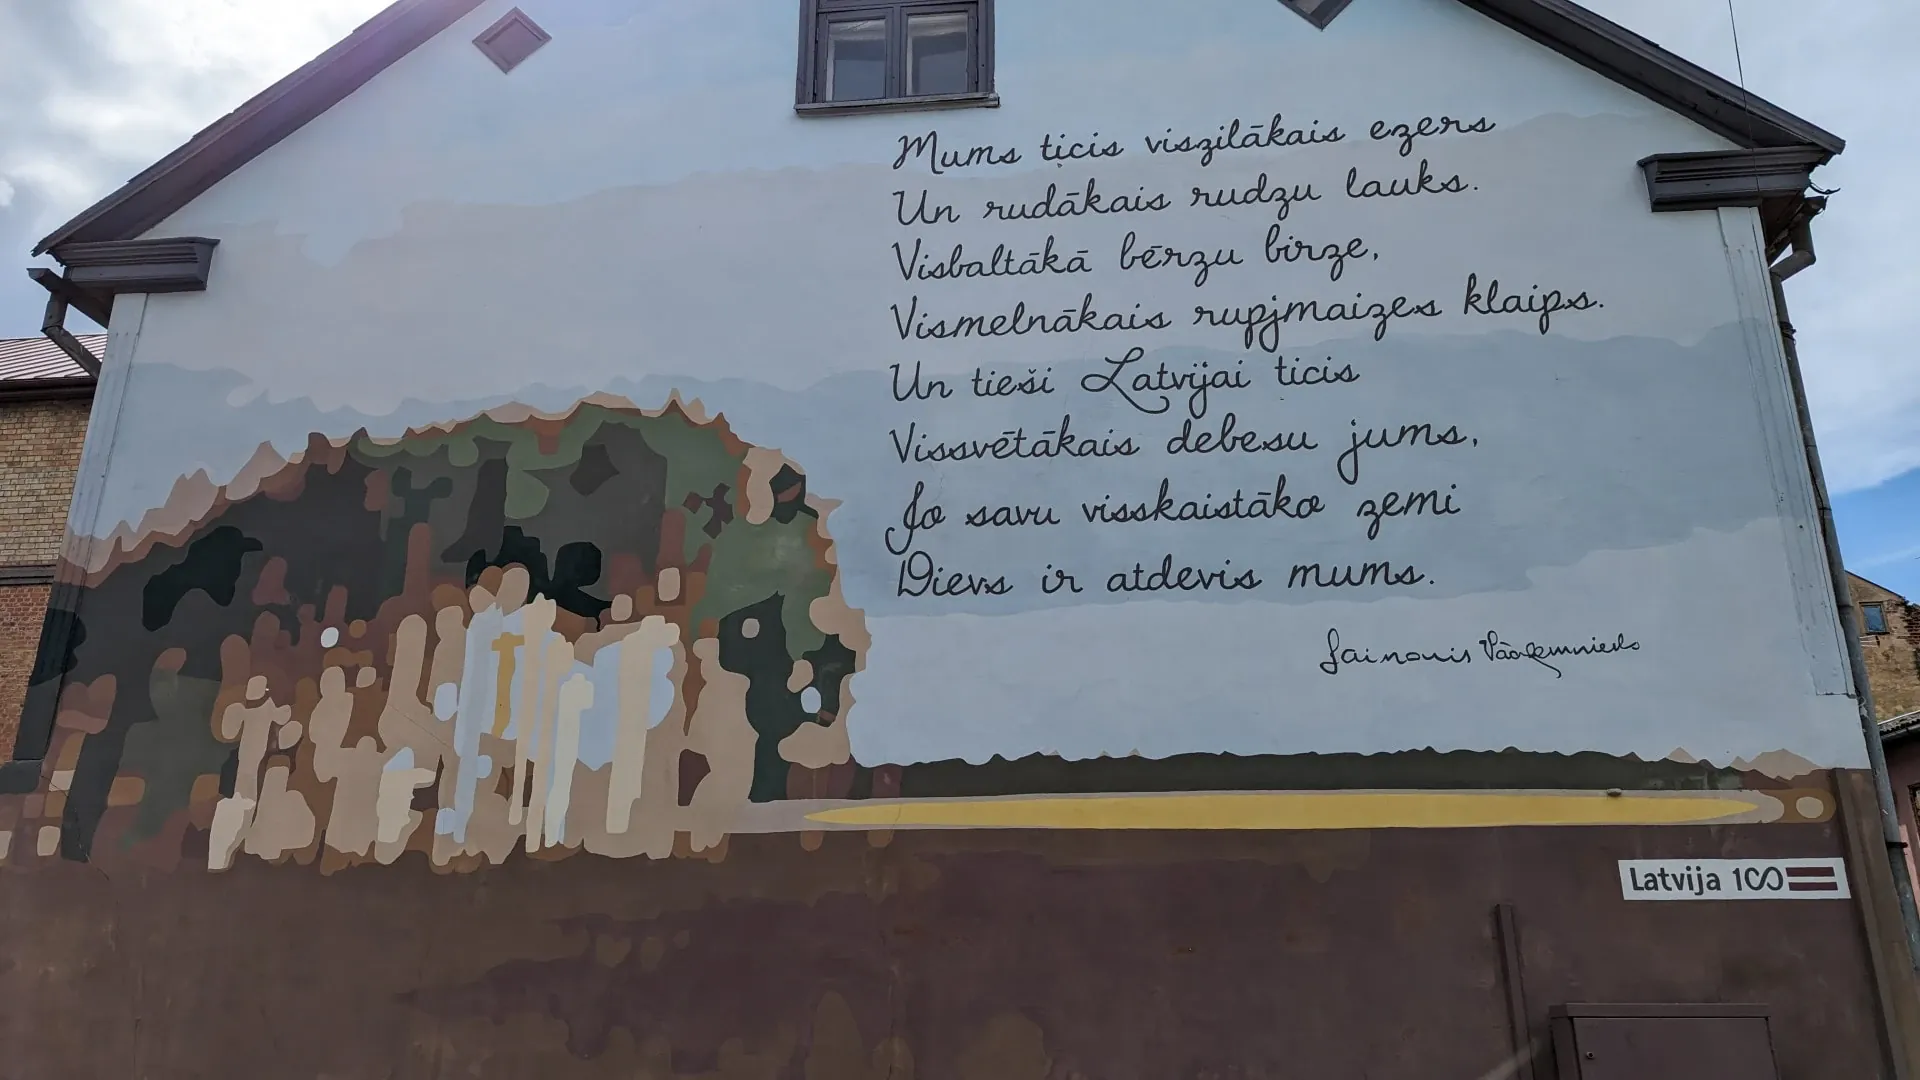 Mums ticis viszilākais ezers
Un rudākais rudzu lauks.
Visbaltākā bērzu birze,
Vismelnākais rupjmaizes klaips.
Un tieši Latvijai ticis
Vissvētākais debesu jums,
Jo savu visskaistāko zemi
Dievs ir atdevis mums.
Laimonis Vāczemnieks
Latvija 100